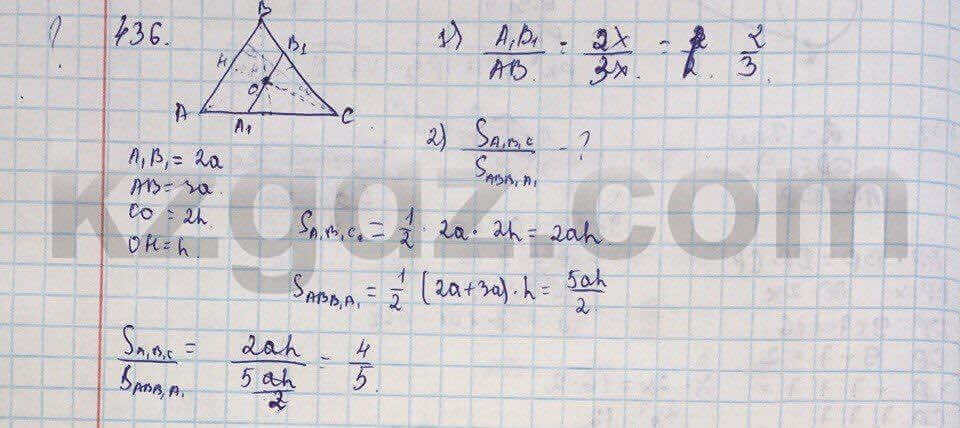 436.
B
H
B₁
O
A
A₁
C
A₁B₁ = 2a
AB = 3a
CO = 2h.
OH = h.
1) A₁B₁/AB. = 2x/3x. = 2/3.
2) S_A₁B₁C/S_ABB₁A₁ - ?
S_A₁B₁C. = 1/2 · 2a · 2h = 2ah.
S_ABB₁A₁ = 1/2 (2a+3a)·h = 5ah/2.
S_A₁B₁C/S_ABB₁A₁ = 2ah/(5ah/2) = 4/5.
kzgdz.com